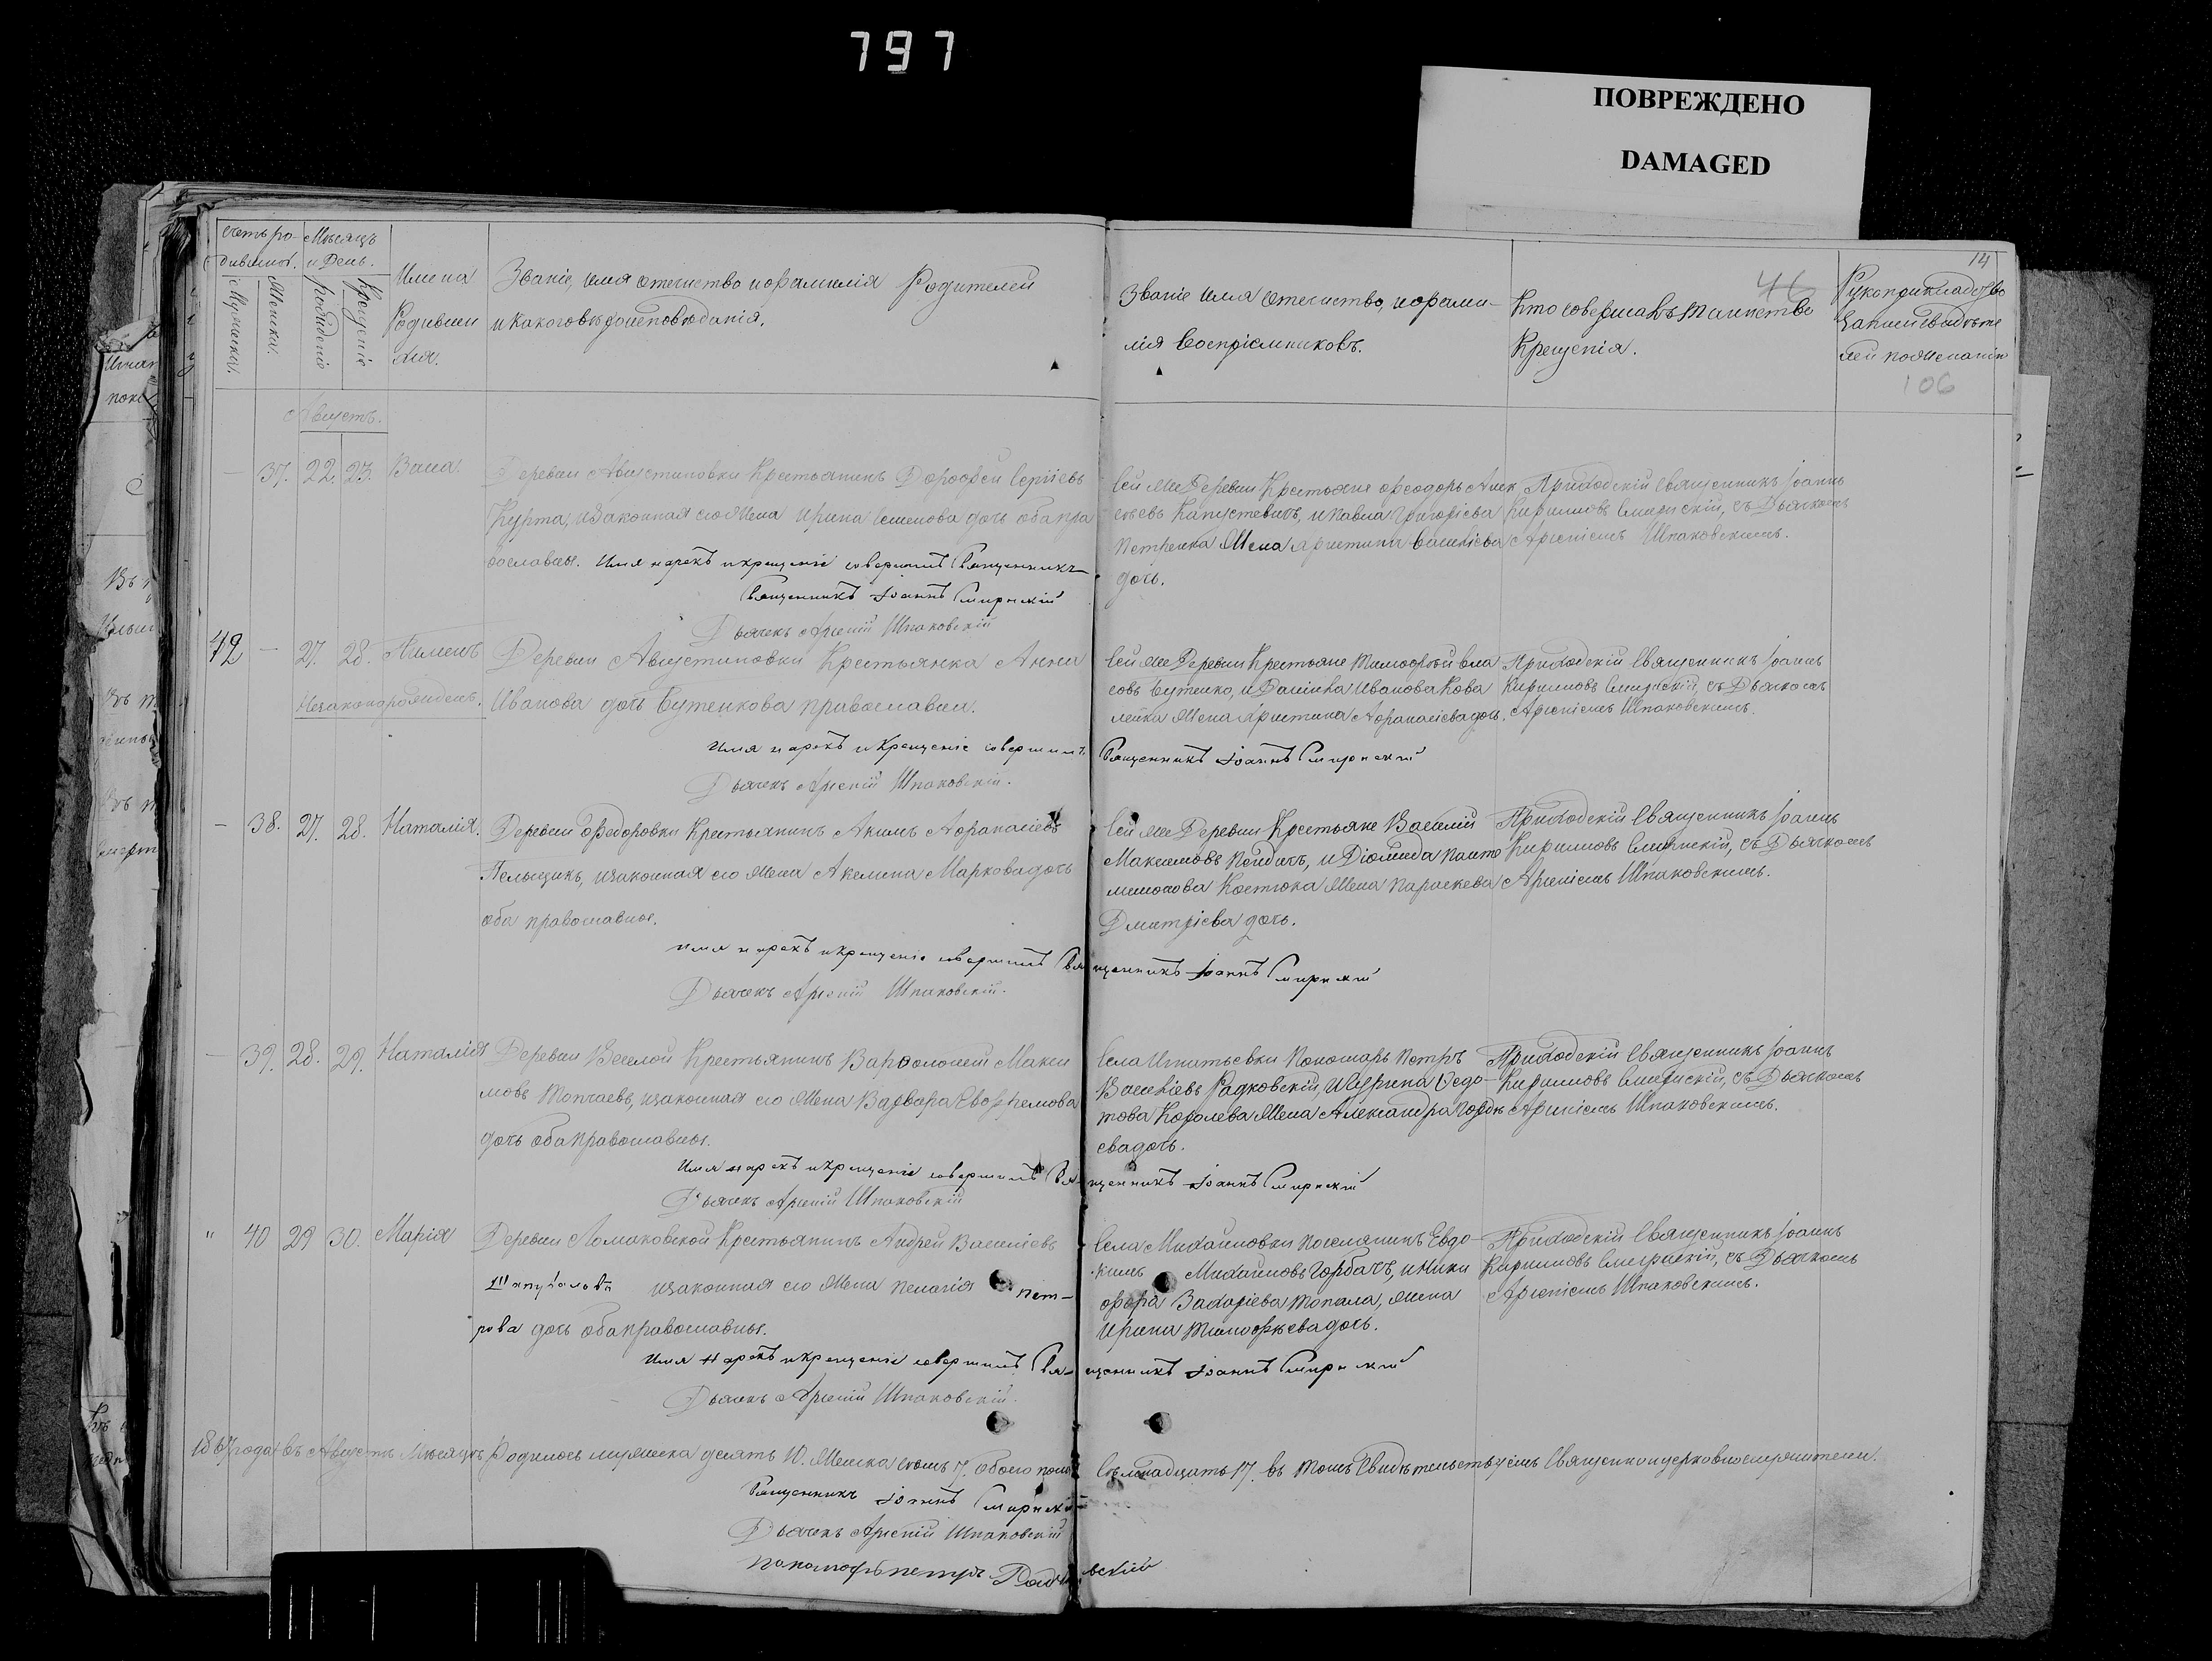 797
ПОВРЕЖДЕНО
DAMAGED
14
46
106
Счетъ родившихъ.
Мѣсяцъ и День.
Мужеска.
Женска.
рожденія
Крещенія
Имена
Родивших
ся.
Званіе, имя отечество и фамилія Родителей
и какого вѣроисповѣданія.
Званіе имя отечество, и фами-
лія Воспріемниковъ.
Кто совершалъ таинство
Крещенія.
Рукоприкладство
записи свидѣте
лей по желанію
Августъ.
37. 22. 23. Васа.
Деревни Августиновки Крестьянинъ Дорофей Сергіевъ
Курта, и законная его жена Ирина Семенова дочь оба пра
вославны. Имя нарекъ и крещеніе совершилъ Священникъ
Священникъ Іоаннъ Смирнскій
Дьячекъ Арсеній Шпаковскій
Сей же Деревни Крестьяне Феодоръ Алек
сѣевъ Капустевичъ, и Павла Григорієва
Петренка Жена Христина Василіева
дочь.
Приходскій Священникъ Іоаннъ
Кирилловъ Смирнскій, съ Дьячкомъ
Арсеніемъ Шпаковскимъ.
42 – 27. 28. Пименъ
Незаконорожденъ.
Деревни Августиновки Крестьянка Анна
Иванова дочь Бутенкова православна.
Имя нарекъ и Крещеніе совершилъ Священникъ Іоаннъ Смирнскій
Дьячекъ Арсеній Шпаковскій.
Сей же Деревни Крестьяне Тимофѣй Вла
совъ Бутенко, и Даніила Иванова Кова
лейка Жена Христина Афанасіева дочь.
Приходскій Священникъ Іоаннъ
Кирилловъ Смирнскій, съ Дьячкомъ
Арсеніемъ Шпаковскимъ.
– 38. 27. 28. Наталія.
Деревни Федоровки Крестьянинъ Акимъ Афанасіевъ
Пельщикъ, и законная его жена Акелина Маркова дочь
оба православные.
Имя нарекъ и крещеніе совершилъ Священникъ Іоаннъ Смирнскій
Дьячекъ Арсеній Шпаковскій.
Сей же Деревни Крестьяне Василій
Максимовъ Пендичъ, и Діомида Панте
лимонова Костюка Жена Параскева
Дмитріева дочь.
Приходскій Священникъ Іоаннъ
Кирилловъ Смирнскій, съ Дьячкомъ
Арсеніемъ Шпаковскимъ.
– 39. 28. 29. Наталія
Деревни Веселой Крестьянинъ Варфоломей Макси
мовъ Топчаевъ, и законная его Жена Варвара Евфимова
дочь оба православны.
Имя нарекъ и крещеніе совершилъ Священникъ Іоаннъ Смирнскій
Дьячекъ Арсеній Шпаковскій
Села Игнатьевки Пономарь Петръ
Василіевъ Радковскій, и Гурина Ѳедо-
това Королева Жена Александра Гордѣ
ева дочь.
Приходскій Священникъ Іоаннъ
Кирилловъ Смирнскій, съ Дьячкомъ
Арсеніемъ Шпаковскимъ.
" 40 29 30. Марія
Деревни Ломаковской Крестьянинъ Андрей Василіевъ
и законная его Жена Пелагія Пет-
рова дочь оба православны.
Имя нарекъ и крещеніе совершилъ Священникъ Іоаннъ Смирнскій
Дьячекъ Арсеній Шпаковскій.
Села Михайловки поселянинъ Евдо-
кимъ Михайловъ Горбачъ, и Ники
фора Захаріева Топала, жена
Ирина Тимофѣева дочь.
Приходскій Священникъ Іоаннъ
Кирилловъ Смирнскій, съ Дьячкомъ
Арсеніемъ Шпаковскимъ.
1867 года въ Августѣ Мѣсяцѣ Родилось мужеска десять 10. Женска семь 7. обоего пола Семнадцать 17. въ томъ Свидѣтельствуемъ Священноцерковнослужители.
Священникъ Іоаннъ Смирнскій
Дьячекъ Арсеній Шпаковскій
Пономарь Петръ Радковскій